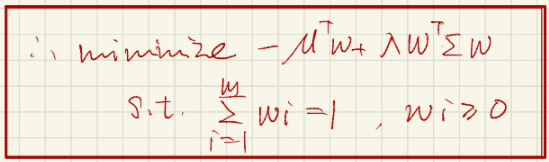 ∴ minimize −μᵀw + λwᵀΣw
s.t. ∑_{i=1}^{m} wi = 1 , wi ≥ 0